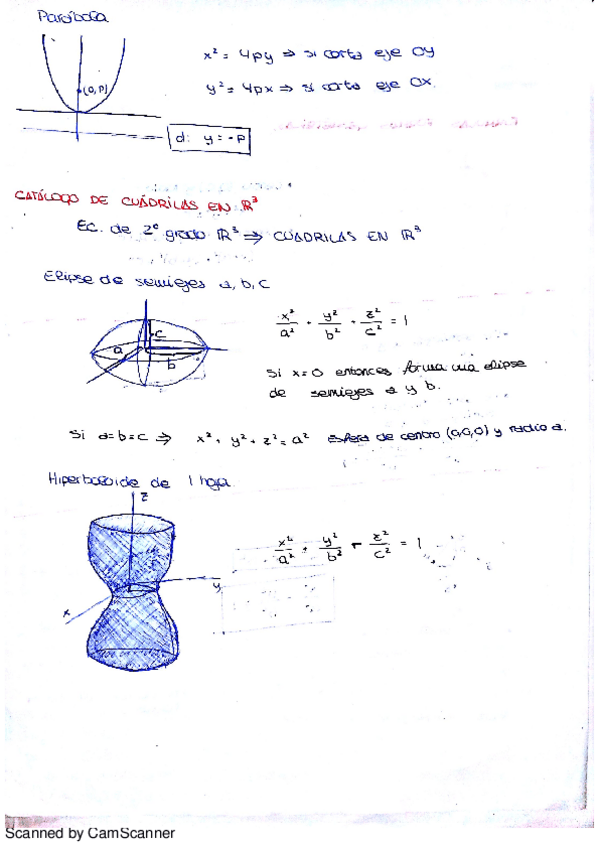 Parábola
x² = 4py ⇒ si corta eje OY
(0, P)
y² = 4px ⇒ si corta eje OX.
d: y = -P
CATÁLOGO DE CUÁDRICAS EN ℝ³
EC. de 2º grado ℝ³ ⇒ CUÁDRICAS EN ℝ³
Elipse de semiejes a, b, c
c
a
b
x²/a² + y²/b² + z²/c² = 1
Si x=0 entonces forma una elipse
de semiejes a y b.
Si a=b=c ⇒ x² + y² + z² = a² Esfera de centro (0,0,0) y radio a.
Hiperboloide de 1 hoja
z
x²/a² + y²/b² - z²/c² = 1
y
x
Scanned by CamScanner